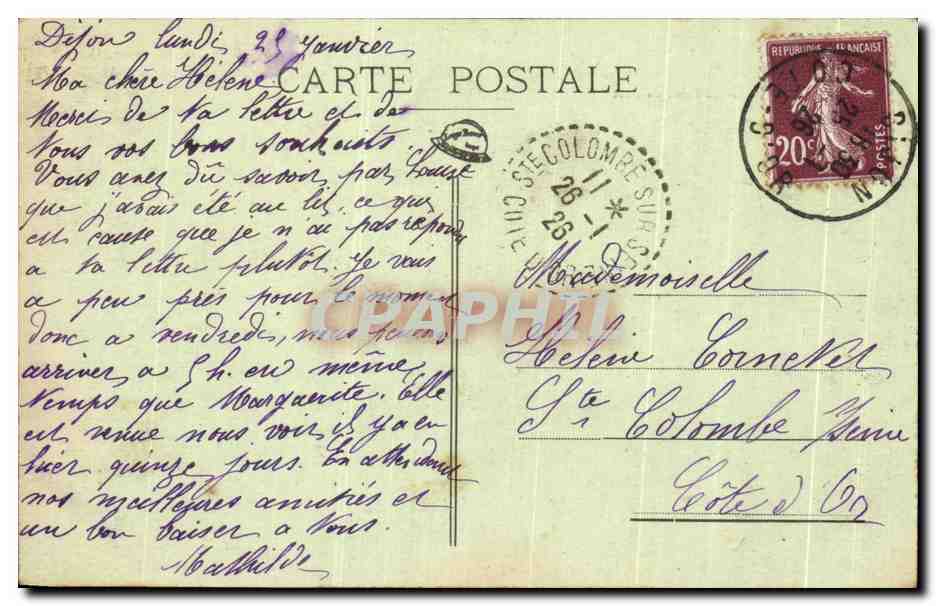 Dijon lundi 25 Janvier
Ma chère Hélène
CARTE POSTALE
Merci de ta lettre et de
tous vos bons souhaits
Vous avez dû savoir par Louise
que j'avais été au lit, ce qui
est cause que je n'ai pas répondu
a ta lettre plutôt. Je vais
a peu près pour le moment
donc a vendredi, nous pensons
arriver a 5 h. en même
temps que Marguerite. Elle
est venue nous voir il y a eu
hier quinze jours. En attendant
nos meilleures amitiés et
un bon baiser a tous.
Mathilde
REPUBLIQUE FRANÇAISE
20c
POSTES
STE COLOMBE SUR SEINE
11 *
26 - 1
26
Mademoiselle
Hélène Cornevet
Ste Colombe s/Seine
Côte d'Or
CPAPHIL